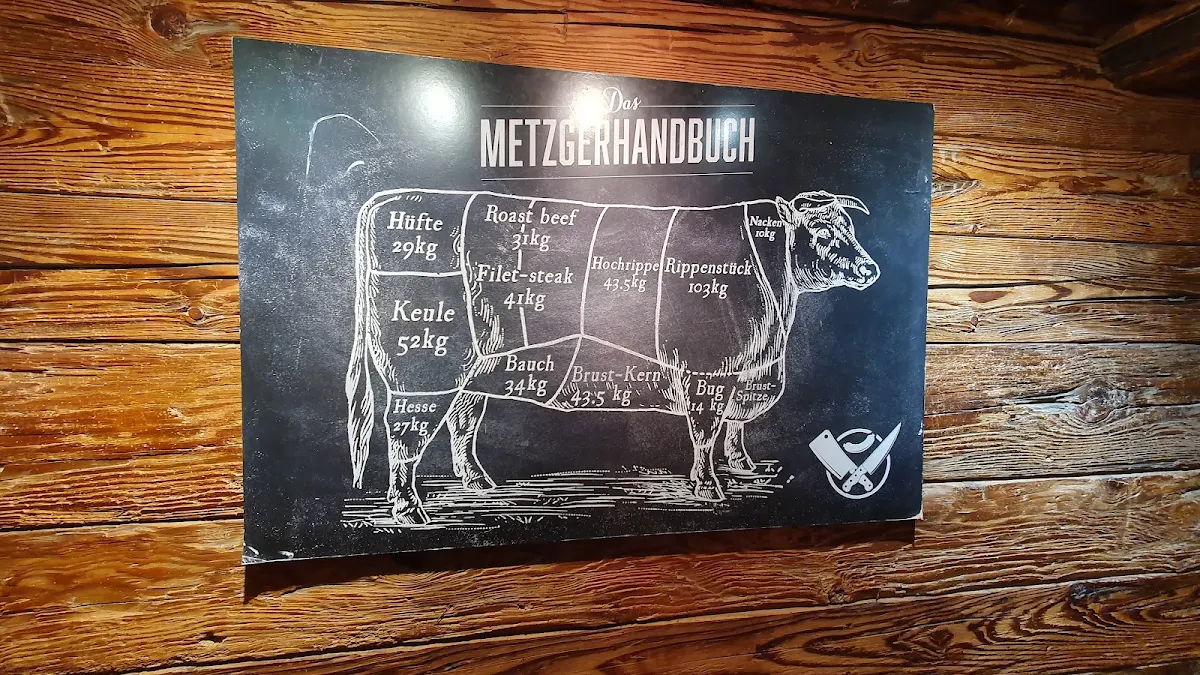 Das
METZGERHANDBUCH
Hüfte
29kg
Roast beef
31kg
Filet-steak
41kg
Hochrippe
43.5kg
Rippenstück
103kg
Nacken
10kg
Keule
52kg
Bauch
34kg
Brust-Kern
43.5 kg
Bug
14 kg
Brust-
Spitze
Hesse
27kg